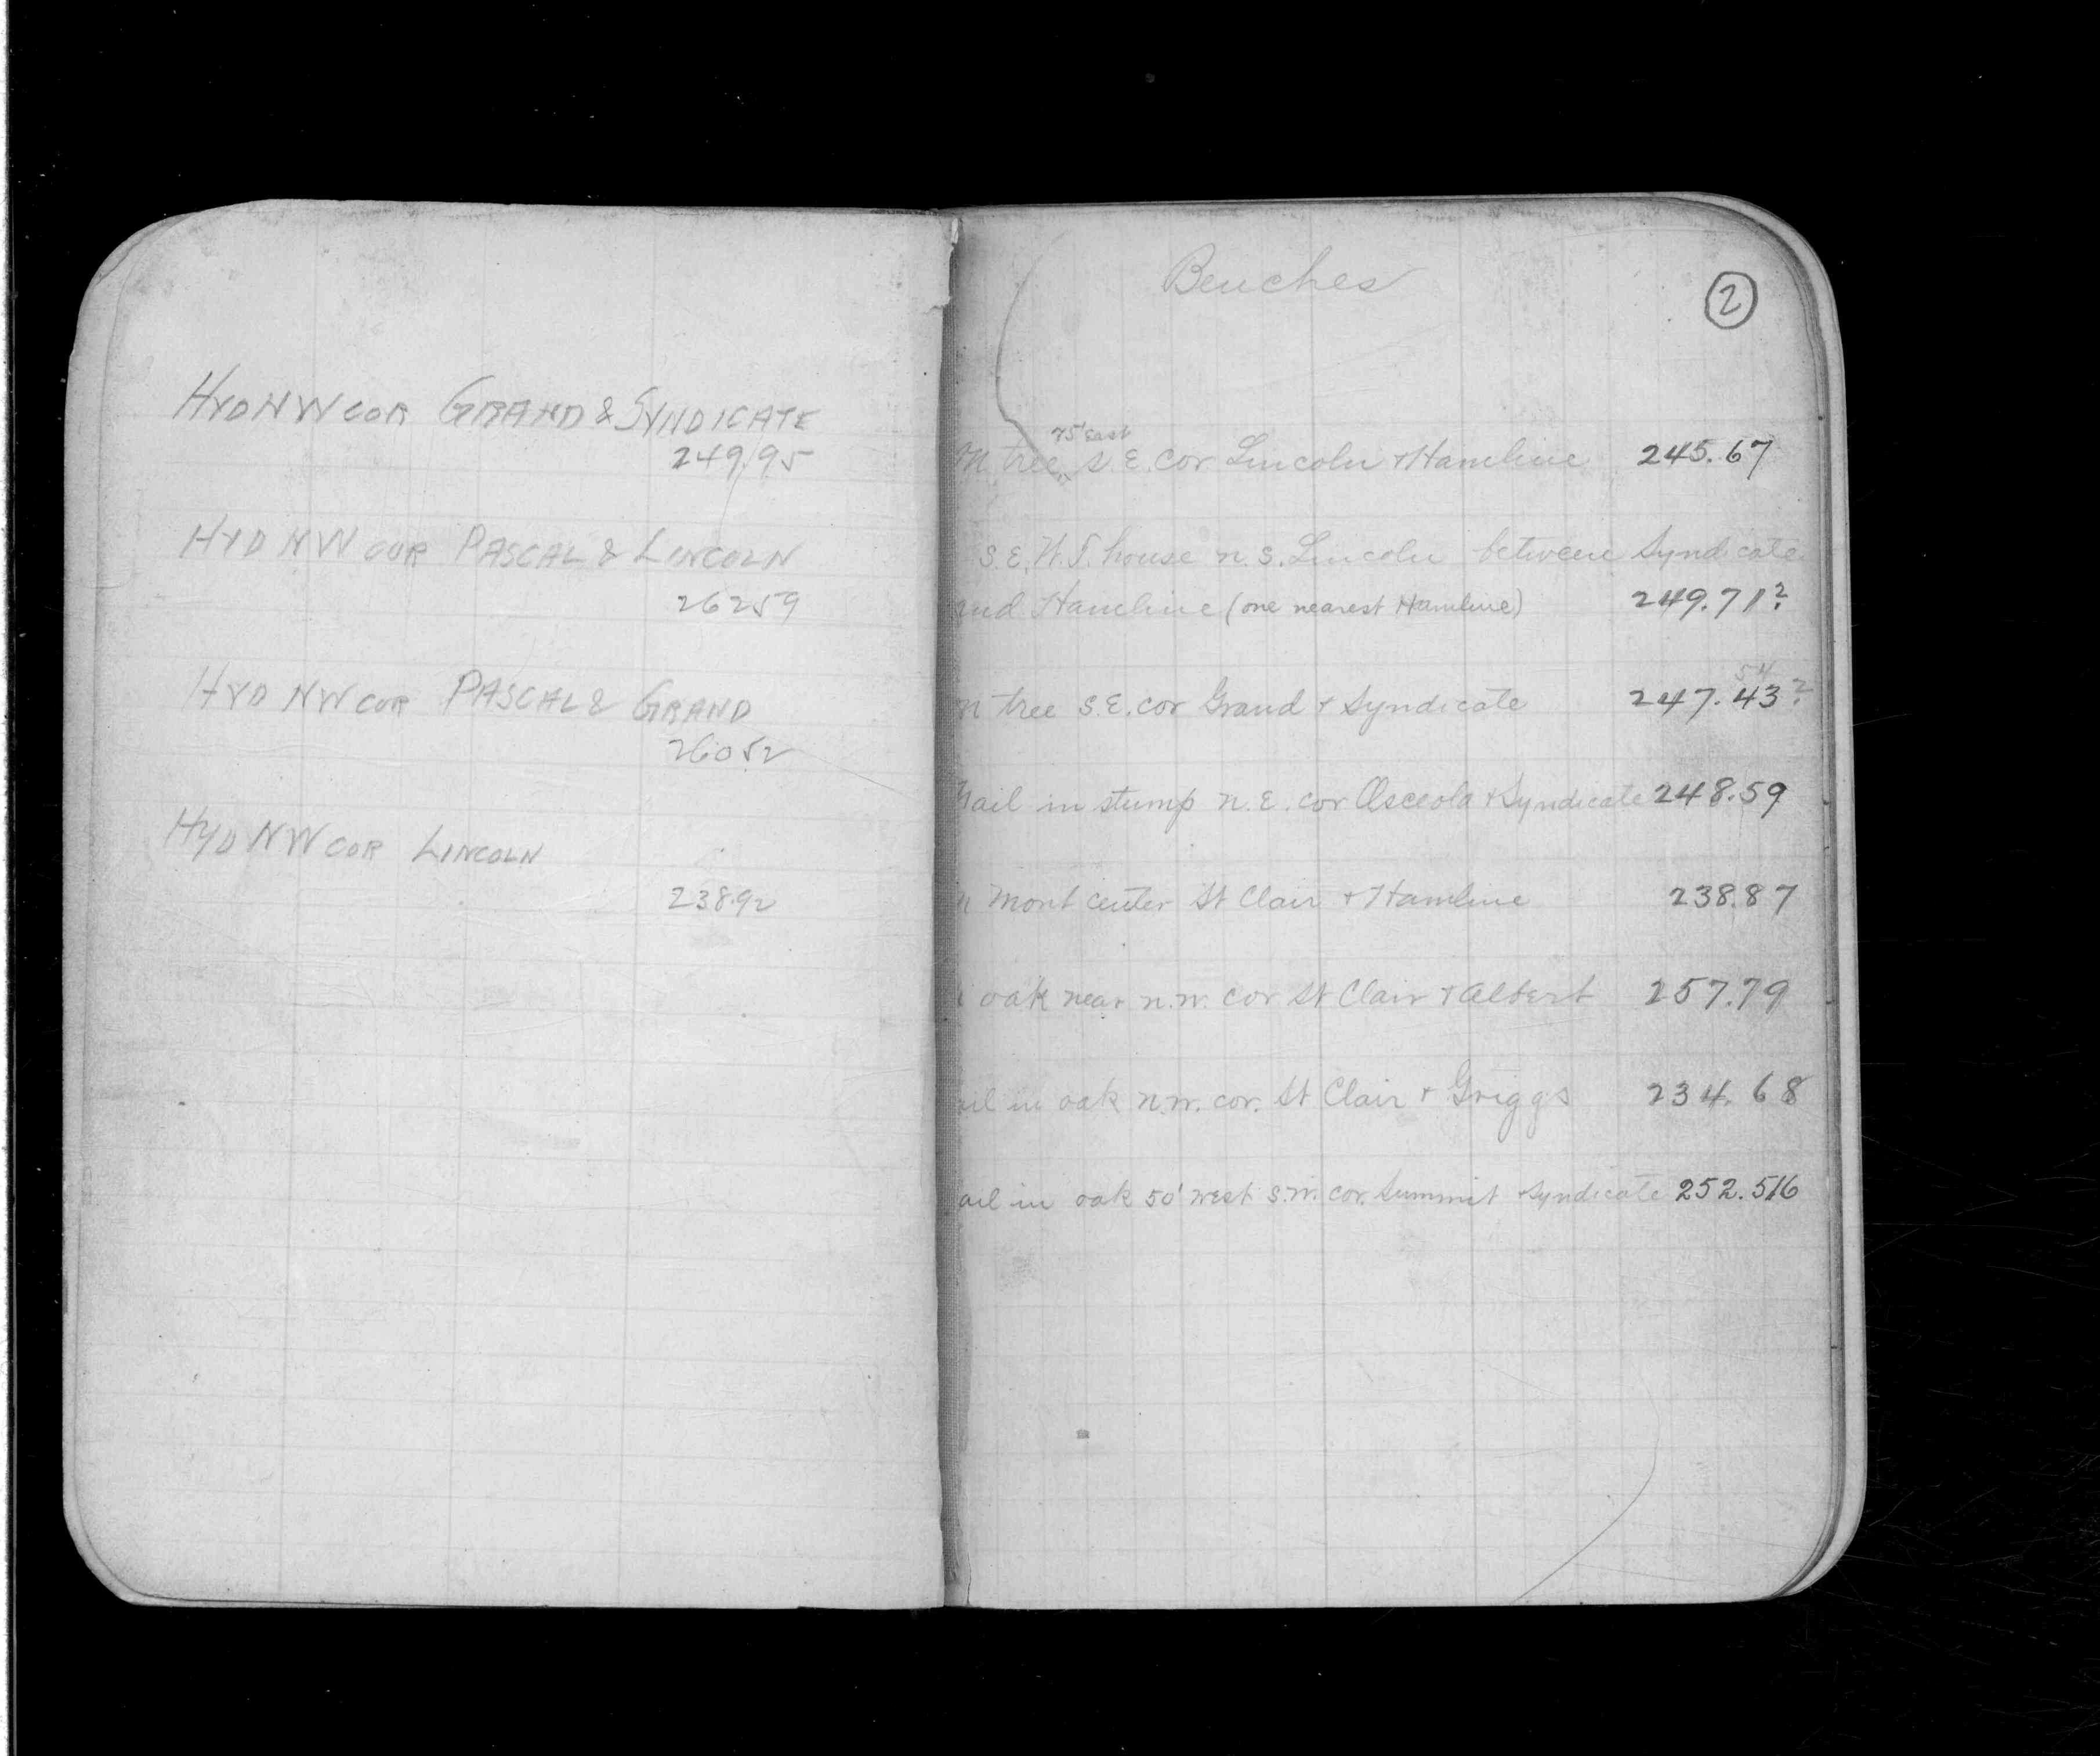 HYD NW COR GRAND & SYNDICATE
249.95
HYD NW COR PASCAL & LINCOLN
26259
HYD NW COR PASCAL & GRAND
26052
HYD NW COR LINCOLN
238.92
Benches
2
75' East
tree S.E. cor Lincoln & Hamline 245.67
S.E. W.T. house n.s. Lincoln between Syndicate
and Hamline (one nearest Hamline) 249.71?
54
n tree S.E. cor Grand & Syndicate 247.43?
Nail in stump n.E. cor Osceola & Syndicate 248.59
n Mont center St Clair & Hamline 238.87
oak near n.w. cor St Clair & Albert 257.79
ail in oak n.w. cor. St Clair & Griggs 234.68
ail in oak 50' west s.w. cor. Summit & Syndicate 252.516